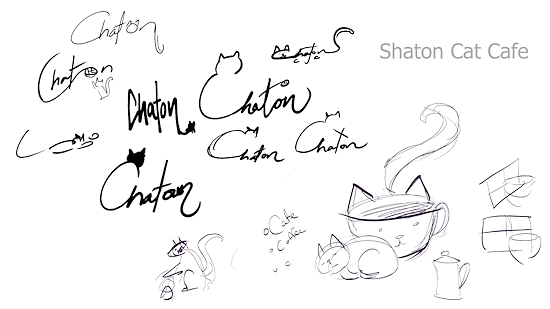 Chaton
Shaton Cat Cafe
Chaton
Chaton
Chaton
Chaton
Chaton
Chaton
Chaton
Cate
Coffee